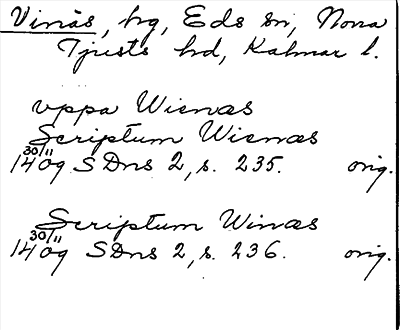 Vinäs, hg, Eds sn, Norra
Tjusts hd, Kalmar l.
vppa Wisnæs
Scriptum Wisnæs
30/11
1409 SDns 2, s. 235. orig.
Scriptum Winæs
30/11
1409 SDns 2, s. 236. orig.